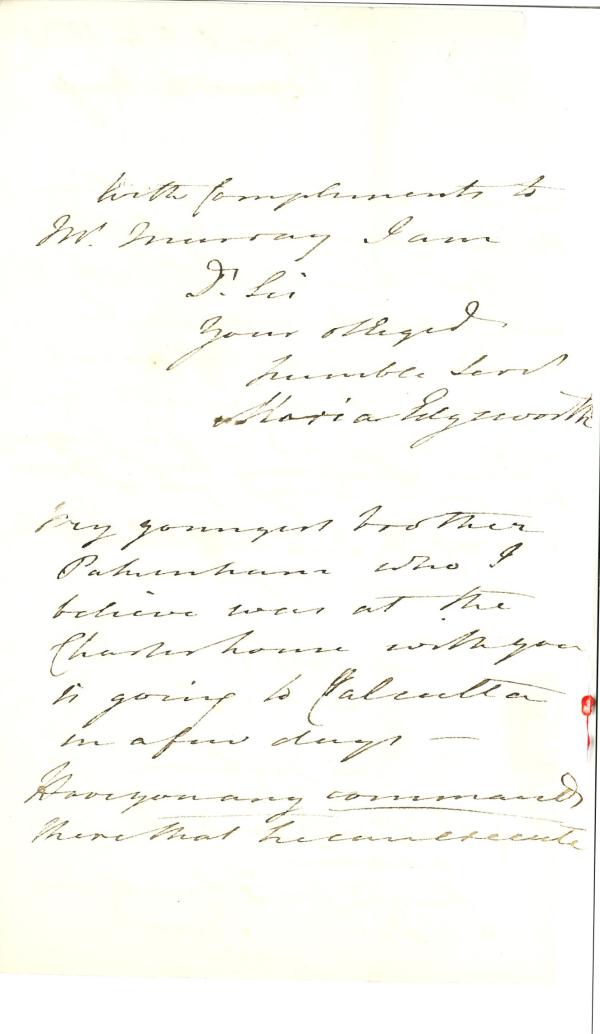 With Compliments to
Mr. Murray I am
Dr. Sir
Your obliged
humble Servt
Maria Edgeworth
My youngest brother
Pakenham who I
believe was at the
Charterhouse with you
is going to Calcutta
in a few days —
Have you any commands
there that he can execute